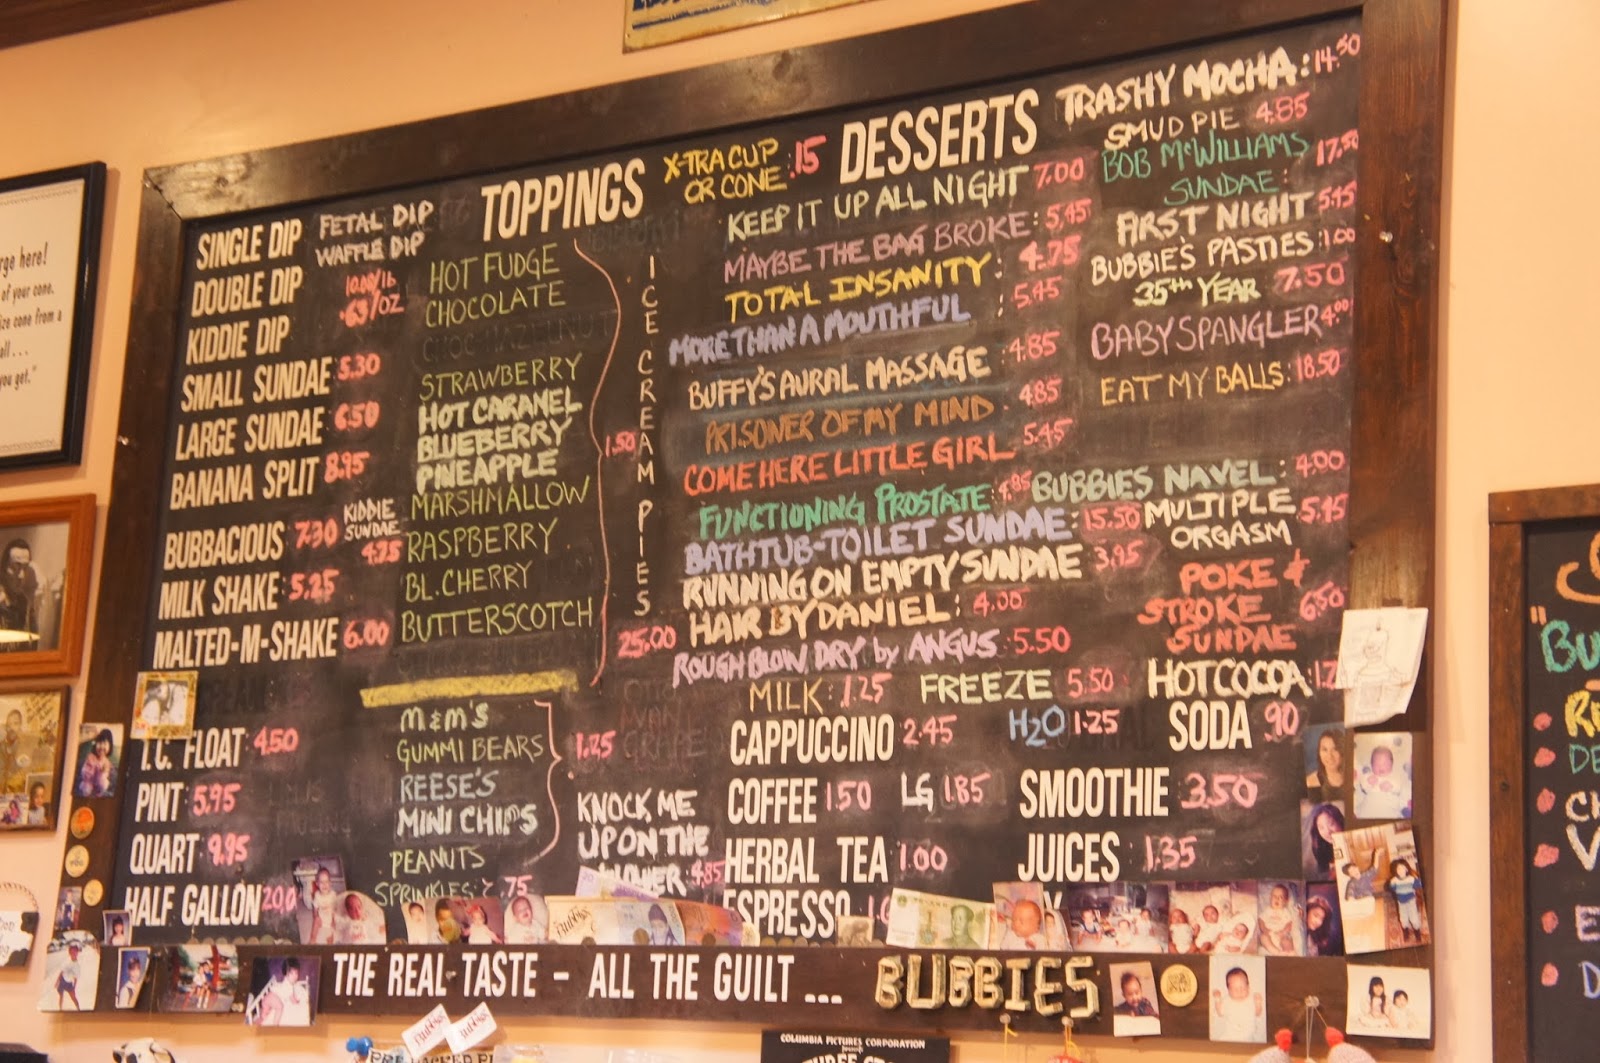 rge here!
of your cone.
ize cone from a
all...
you get."
SINGLE DIP
DOUBLE DIP
KIDDIE DIP
SMALL SUNDAE 5.30
LARGE SUNDAE 6.50
BANANA SPLIT 8.95
BUBBACIOUS 7.30
MILK SHAKE 5.25
MALTED-M-SHAKE 6.00
I.C. FLOAT 4.50
PINT 5.95
QUART 9.95
HALF GALLON 20.0
FETAL DIP
WAFFLE DIP
10.00/lb
.63/OZ
KIDDIE
SUNDAE
4.75
TOPPINGS
HOT FUDGE
CHOCOLATE
CHOC-HAZELNUT
STRAWBERRY
HOT CARAMEL
BLUEBERRY
PINEAPPLE
MARSHMALLOW
RASPBERRY
BL. CHERRY
BUTTERSCOTCH
1.50
M&M'S
GUMMI BEARS
REESE'S
MINI CHIPS
1.25
PEANUTS
SPRINKLES .75
ICE CREAM PIES
25.00
KNOCK ME
UP ON THE
4.85
X-TRA CUP
OR CONE :.15
DESSERTS
KEEP IT UP ALL NIGHT 7.00
MAYBE THE BAG BROKE: 5.45
TOTAL INSANITY: 4.75
MORE THAN A MOUTHFUL : 5.45
BUFFY'S AURAL MASSAGE 4.85
PRISONER OF MY MIND 4.85
COME HERE LITTLE GIRL 5.45
FUNCTIONING PROSTATE: 4.85
BATHTUB-TOILET SUNDAE: 15.50
RUNNING ON EMPTY SUNDAE 3.95
HAIR BY DANIEL: 4.00
ROUGH BLOW DRY by ANGUS 5.50
TRASHY MOCHA: 14.50
SMUD PIE 4.85
BOB McWILLIAMS
SUNDAE: 17.50
FIRST NIGHT 5.45
BUBBIE'S PASTIES: 1.00
35th YEAR 7.50
BABY SPANGLER 4.00
EAT MY BALLS: 18.50
BUBBIES NAVEL: 4.00
MULTIPLE
ORGASM 5.45
POKE &
STROKE
SUNDAE 6.50
MILK: 1.25 FREEZE 5.50 HOT COCOA
CAPPUCCINO 2.45 H2O 1.25 SODA .90
COFFEE 1.50 LG 1.85 SMOOTHIE 3.50
HERBAL TEA 1.00 JUICES 1.35
ESPRESSO
THE REAL TASTE - ALL THE GUILT ... BUBBIES
Bubbies
COLUMBIA PICTURES CORPORATION